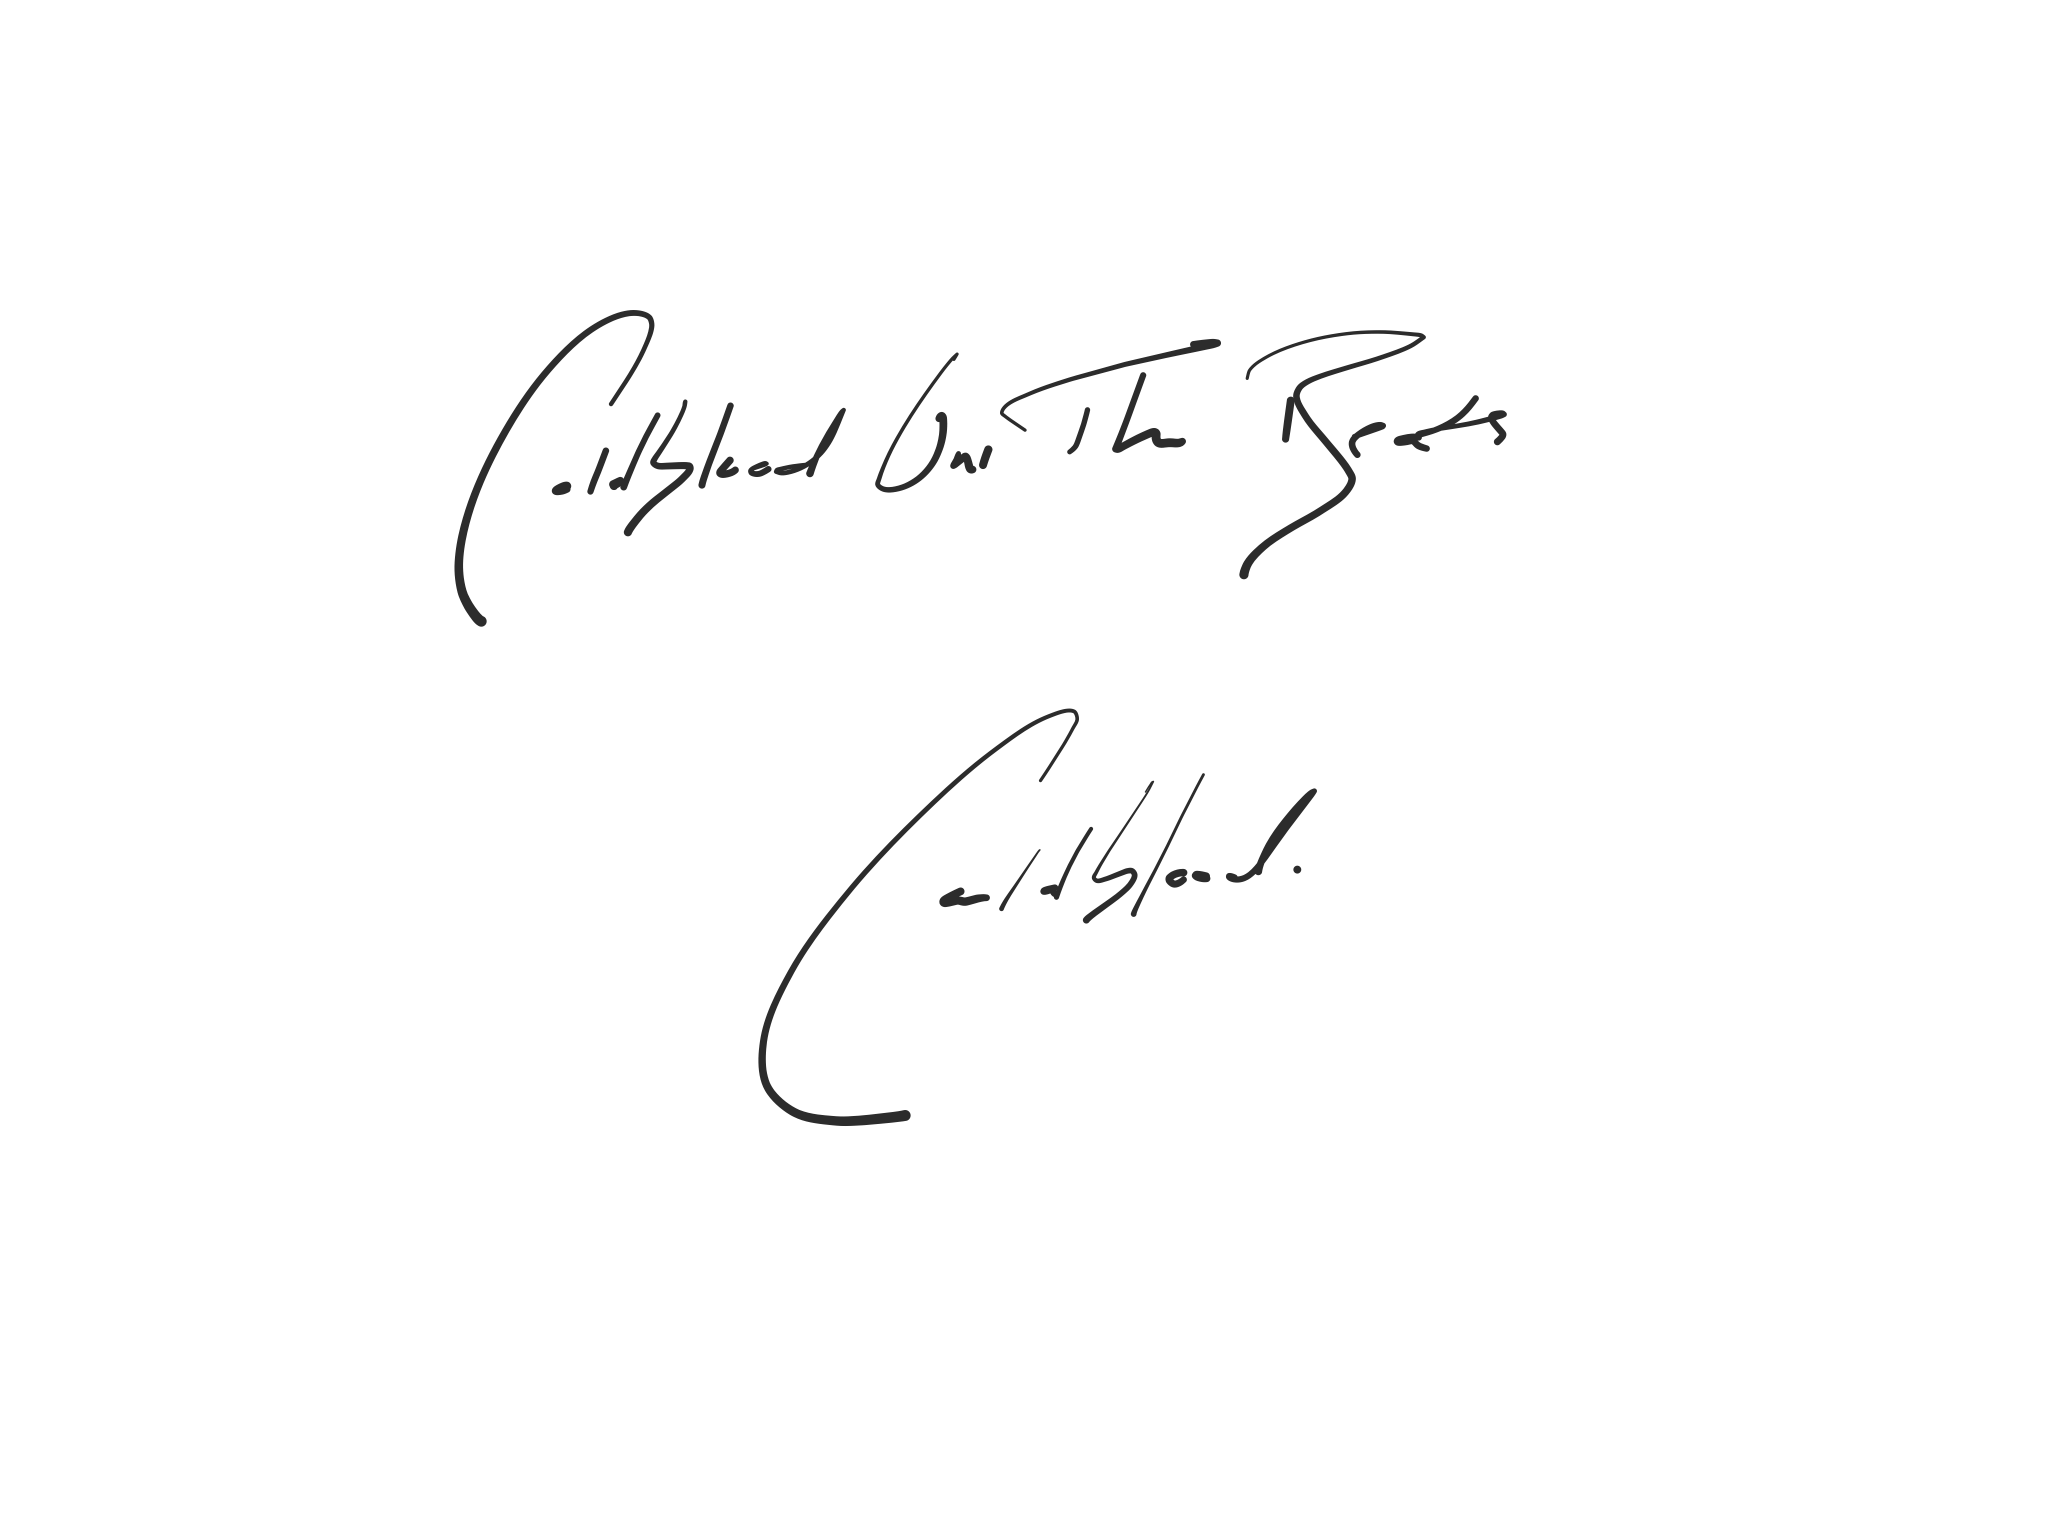 Coldblood On The Beats
Coldblood.